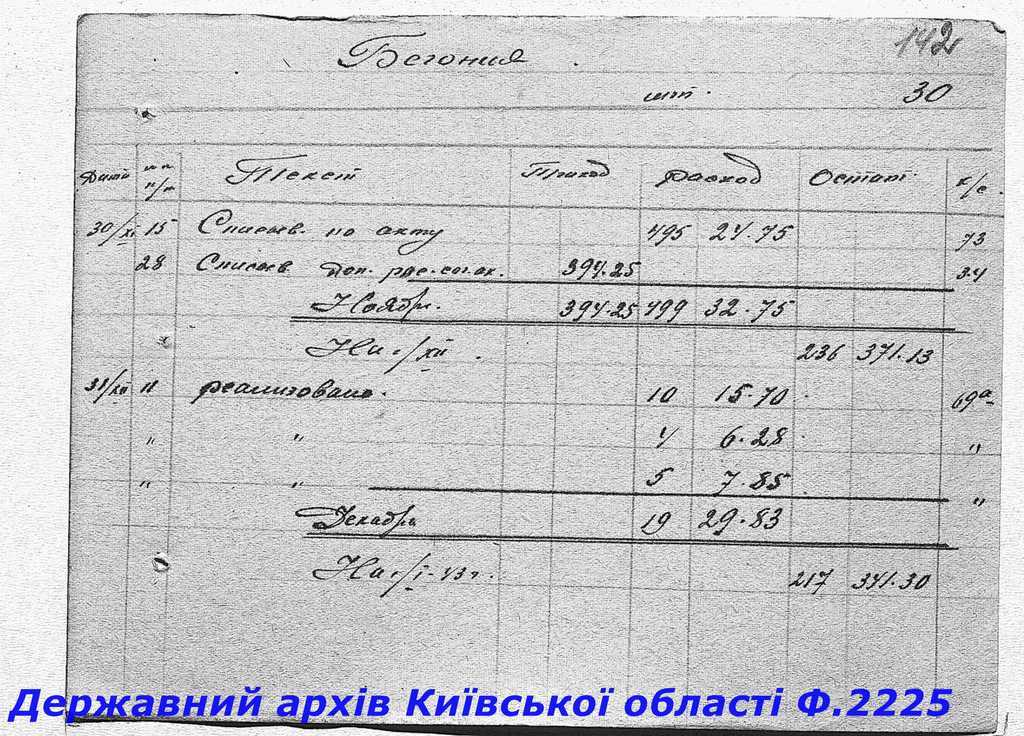 142
Бегония
шт. 30
Дата пп п/п Текст Приход Расход Остат. к/с.
30/XI 15 Списыв. по акту 495 24.75 73
28 Списыв. доп. рас. 394.25 34
Ноябрь. 394.25 499 32.75
На 1/XII. 236 371.13
31/XII 11 реализовано. 10 15.70 69а
" " 4 6.28 "
" " 5 7.85 "
Декабрь 19 29.83
На 1/I-43г. 217 341.30
Державний архів Київської області Ф.2225